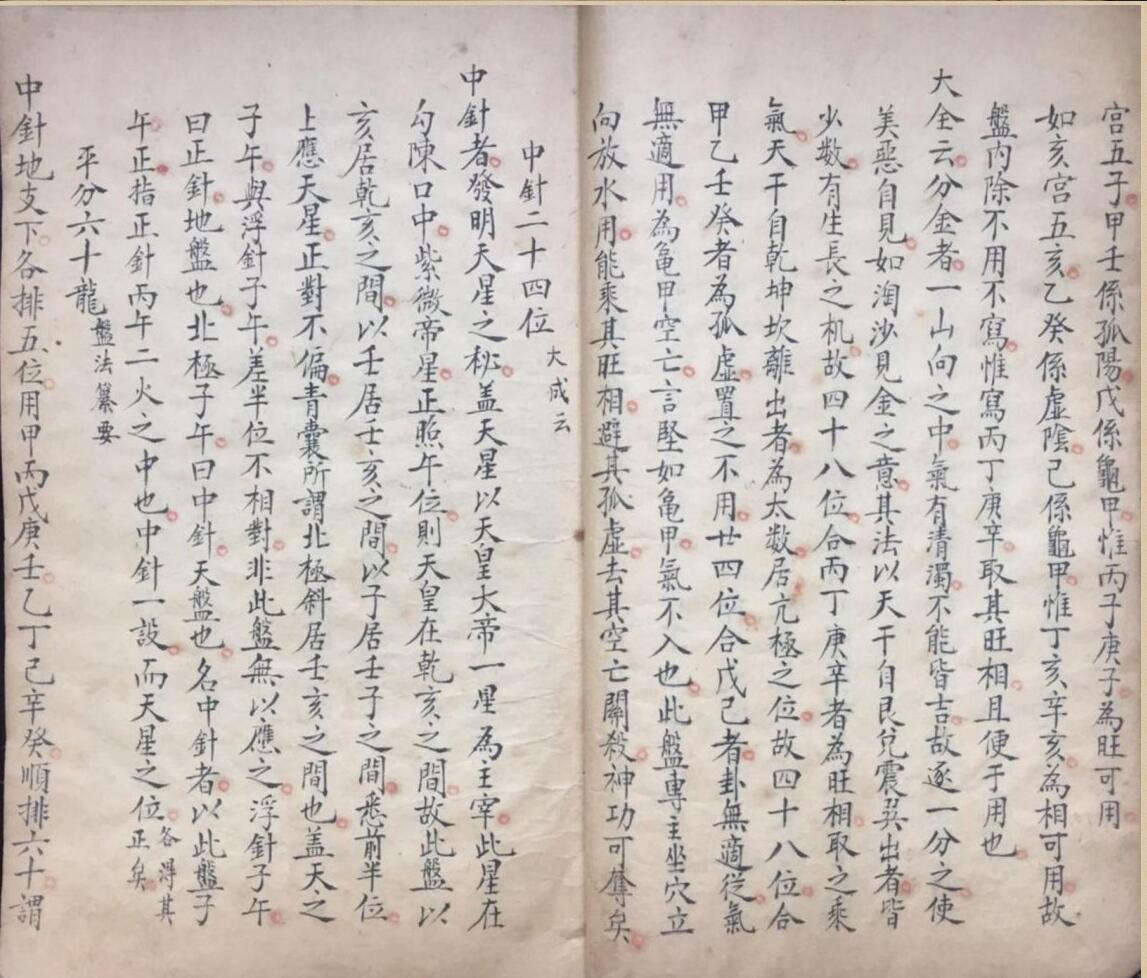 宫五子甲壬係孤陽戊係龜甲惟丙子庚子為旺可用
如亥宫五亥乙癸係虛陰己係龜甲惟丁亥辛亥為相可用故
盤内除不用不寫惟寫丙丁庚辛取其旺相且便于用也
大全云分金者一山向之中氣有清濁不能皆吉故逐一分之使
美惡自見如淘沙見金之意其法以天干自艮兌震巽出者皆
少数有生長之机故四十八位合丙丁庚辛者為旺相取之乘
氣天干自乾坤坎離出者為太数居亢極之位故四十八位合
甲乙壬癸者為孤虛置之不用廿四位合戊己者卦無適從氣
無適用為龜甲空亡言堅如龜甲氣不入也此盤專主坐穴立
向放水用能乘其旺相避其孤虛去其空亡關殺神功可奪矣
中針二十四位 大成云
中針者發明天星之秘盖天星以天皇大帝一星為主宰此星在
勾陳口中紫微帝星正照午位則天皇在乾亥之間故此盤以
亥居乾亥之間以壬居壬亥之間以子居壬子之間悉前半位
上應天星正對不偏青囊所謂北極斜居壬亥之間也盖天之
子午與浮針子午差半位不相對非此盤無以應之浮針子午
曰正針地盤也北極子午曰中針天盤也名中針者以此盤子
午正指正針丙午二火之中也中針一設而天星之位各得其正矣
平分六十龍 盤法纂要
中針地支下各排五位用甲丙戊庚壬乙丁己辛癸順排六十謂